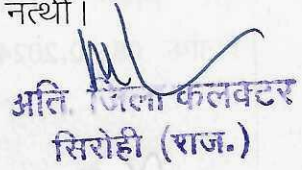 नत्थी।
अति. जिला कलक्टर
सिरोही (राज.)